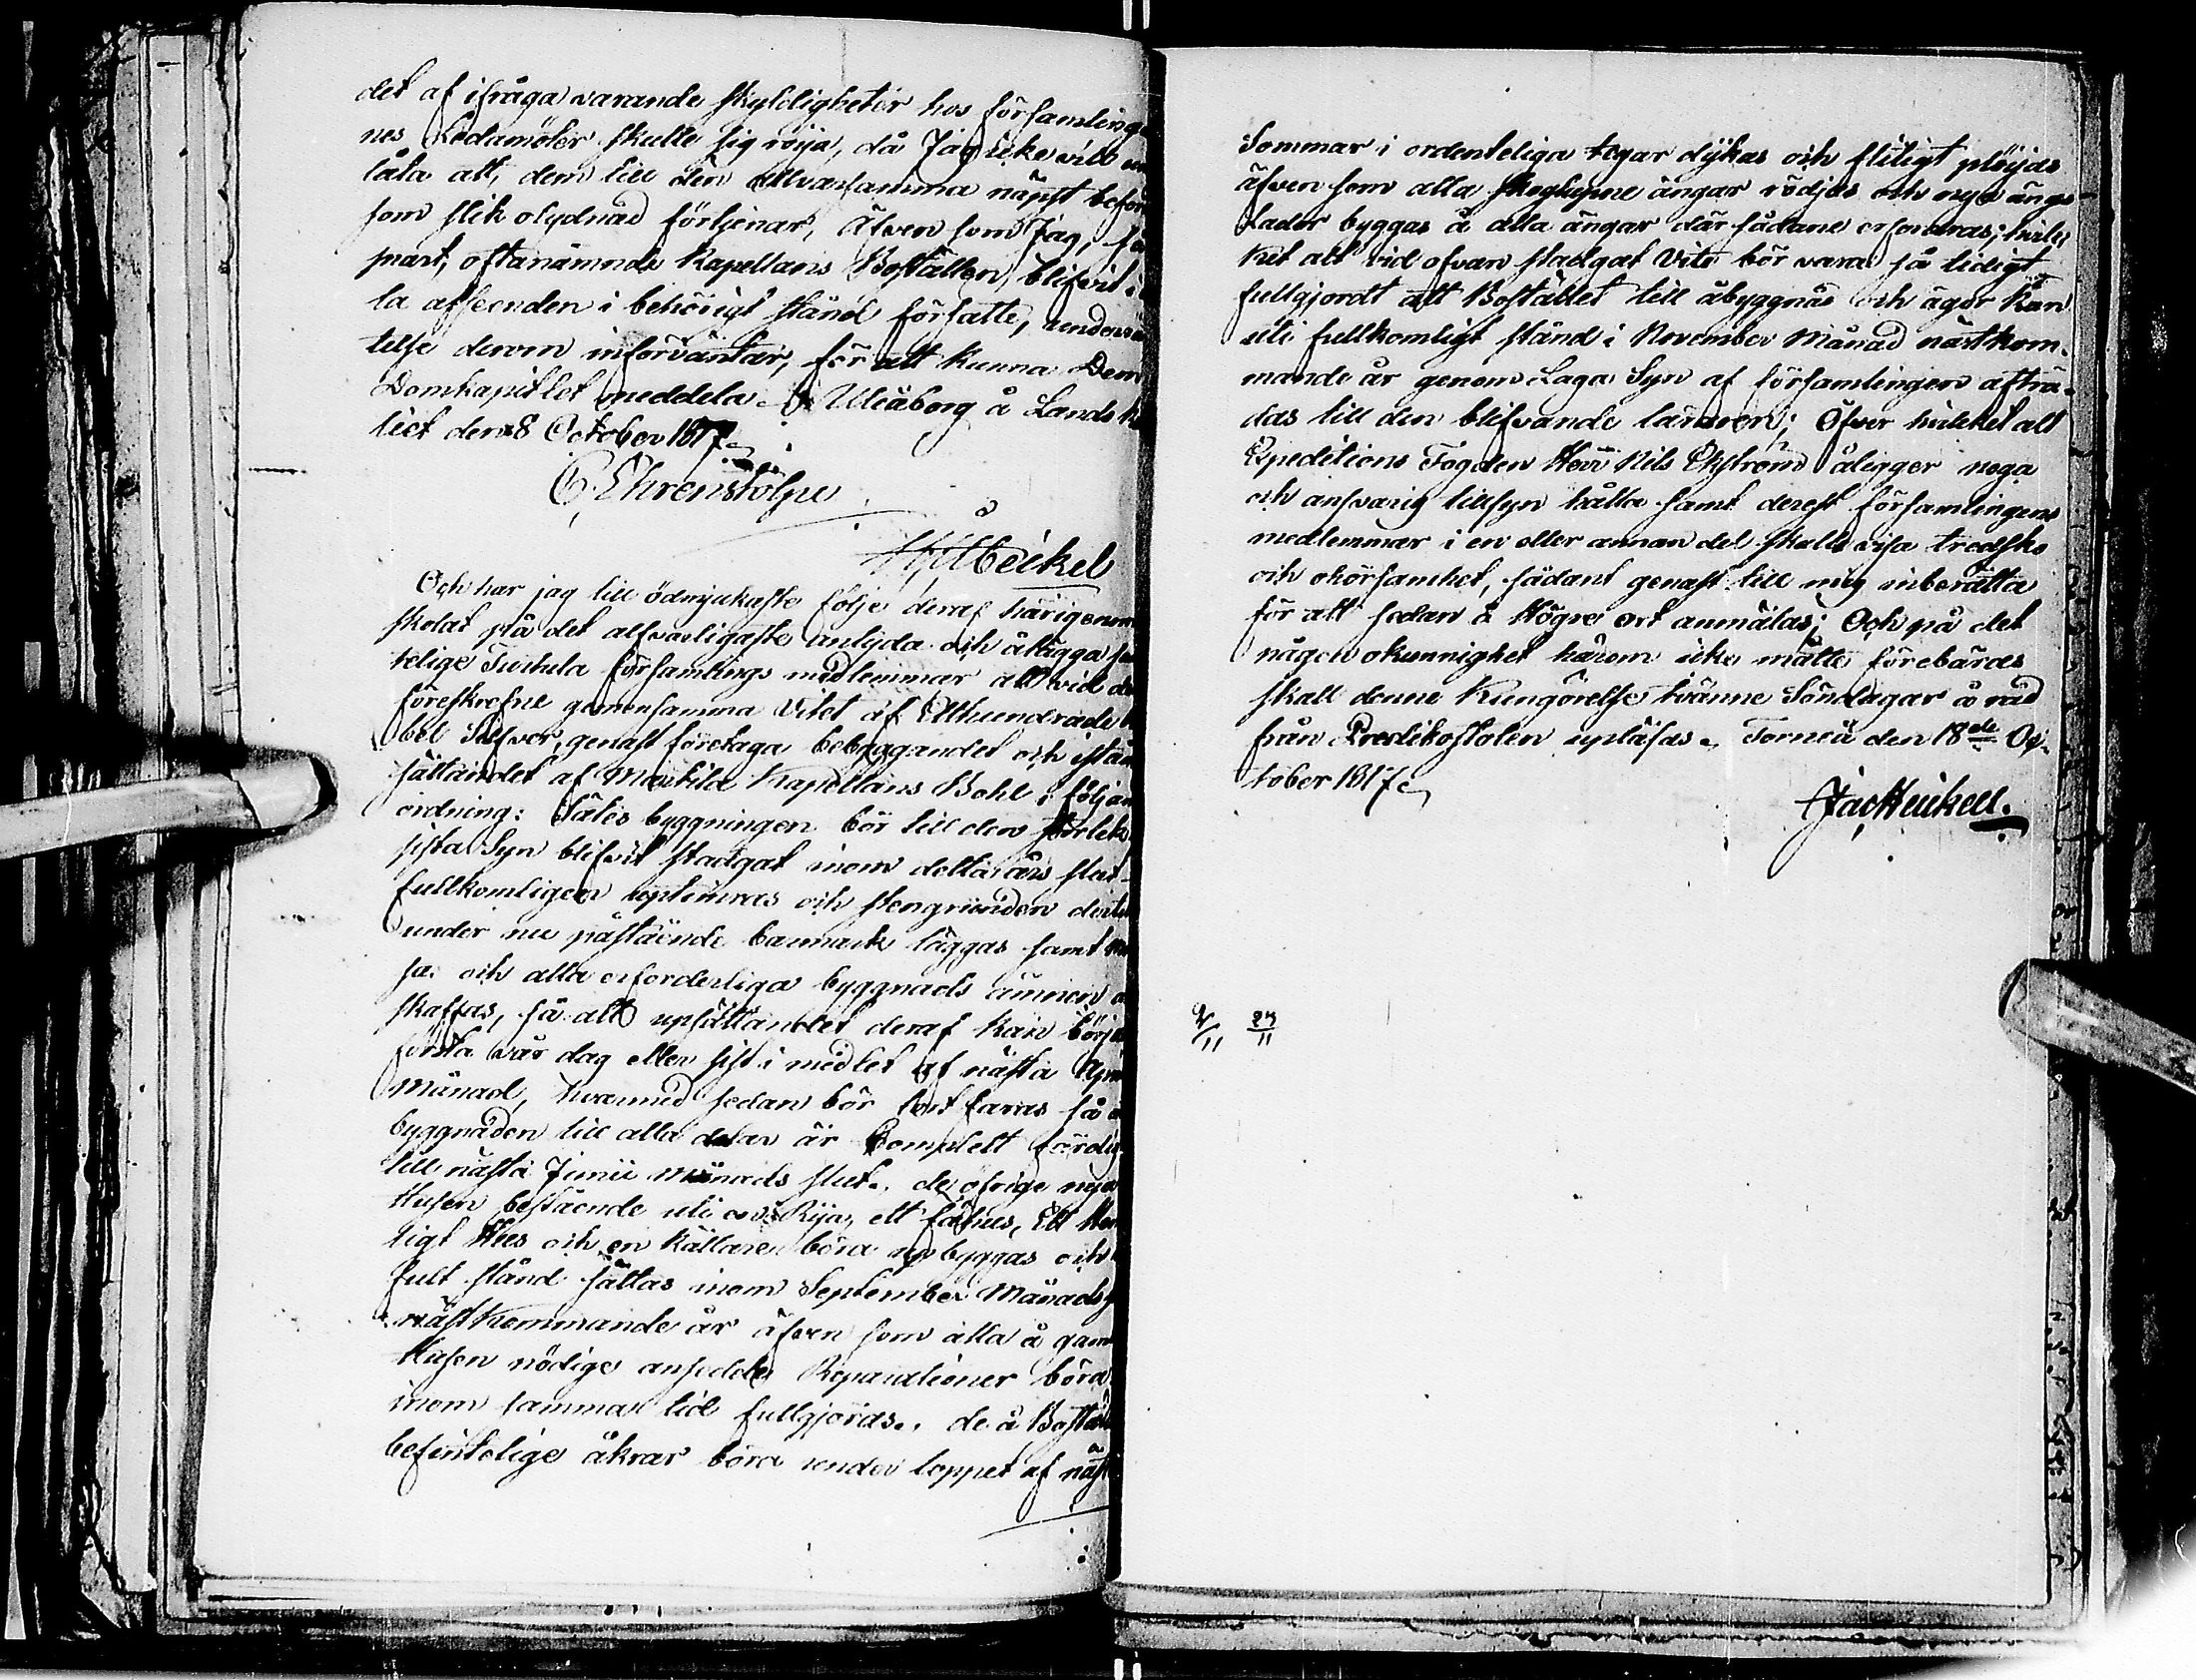 det af ifråga varande skyldigheter hos församlinge
nes Ledamöter skulle sig röija, då Jag icke vill un
låta att, dem till den allvarsamma näpst befor
som slik olydnad förtjenar, Äfven som Jag, så
snart, oftanämnde Kapellans Boställen, blifvit i
la afseenden i behörigt stånd försatte, underrät
telse derom införväntar, för att kunna Dem
Domkapitlet meddela. Uleåborg å Lands k
liet den 8 October 1817.
C. Ehrenstolpe
Och har jag till ödmjukaste följe deraf härigenom
skolat på det alfvarligaste anlyda och ålägga sam
telige Turtula församlings medlemmar att vid det
föreskrefne gemensamma vitet af Etthundrade
bel Silfver, genast företaga bebyggandet och istånd
sättandet af Kapellans Bohl i följan
ordning: Sätes byggningen bör till den storlek
sista Syn blifvit stadgat inom detta års slut
fullkomligen uptimras och stengrunden dertill
under nu påstående barmark läggas samt
sa och alla erforderliga byggnads ämnen a
skaffas, så att upsättandet deraf kan börja
första vår dag eller sist i medlet af nästa Apr
Månad, hvarmed sedan bör fort faras så a
byggnaden till alla delar är Complett färdig
till nästa Junii Månads slut. de öfrige nya
Husen bestående uti en Rija, ett fähus, Ett
ligt Hus och en källare böra upbyggas och
fult stånd sättas inom September Månads
nästkommande år äfven som alla å gam
Husen nödige ansedde Reparationer böra
inom samma tid fullgjöras. de å Bostäl
befintelige åkrar böra under loppet af näst
Sommar i ordenteliga tegar dykas och flitigt plöijas
äfven som alla ängar rödjas och nya ängs
Lador byggas å alla ängar där sådane erfordras; hvil
ket alt vid ofvan stadgat Vite bör vara så tidigt
fullgjordt att Bostället till åbyggnad och ägor kan
uti fullkomligt stånd i November Månad nästkom-
mande år genom Laga Syn af församlingen afträ-
das till den blifvande läraren; Öfver hvilket alt
Expeditions Fogden Herr Nils Ekström åligger noga
och ansvarig tillsyn hålla samt derest församlingens
medlemmar i en eller annan del skulle visa tredsko
och ohörsamhet, sådant genast till mig inberätta
för att sedan å Högre ort anmälas; Och på det
någon okunnighet härom icke måtte förebäras
skall denne Kungörelse tvänne Söndagar å rad
från Predikostolen upläsas. Torneå den 18de Oc-
tober 1817.
Jac Heickell.
2/11 23/11